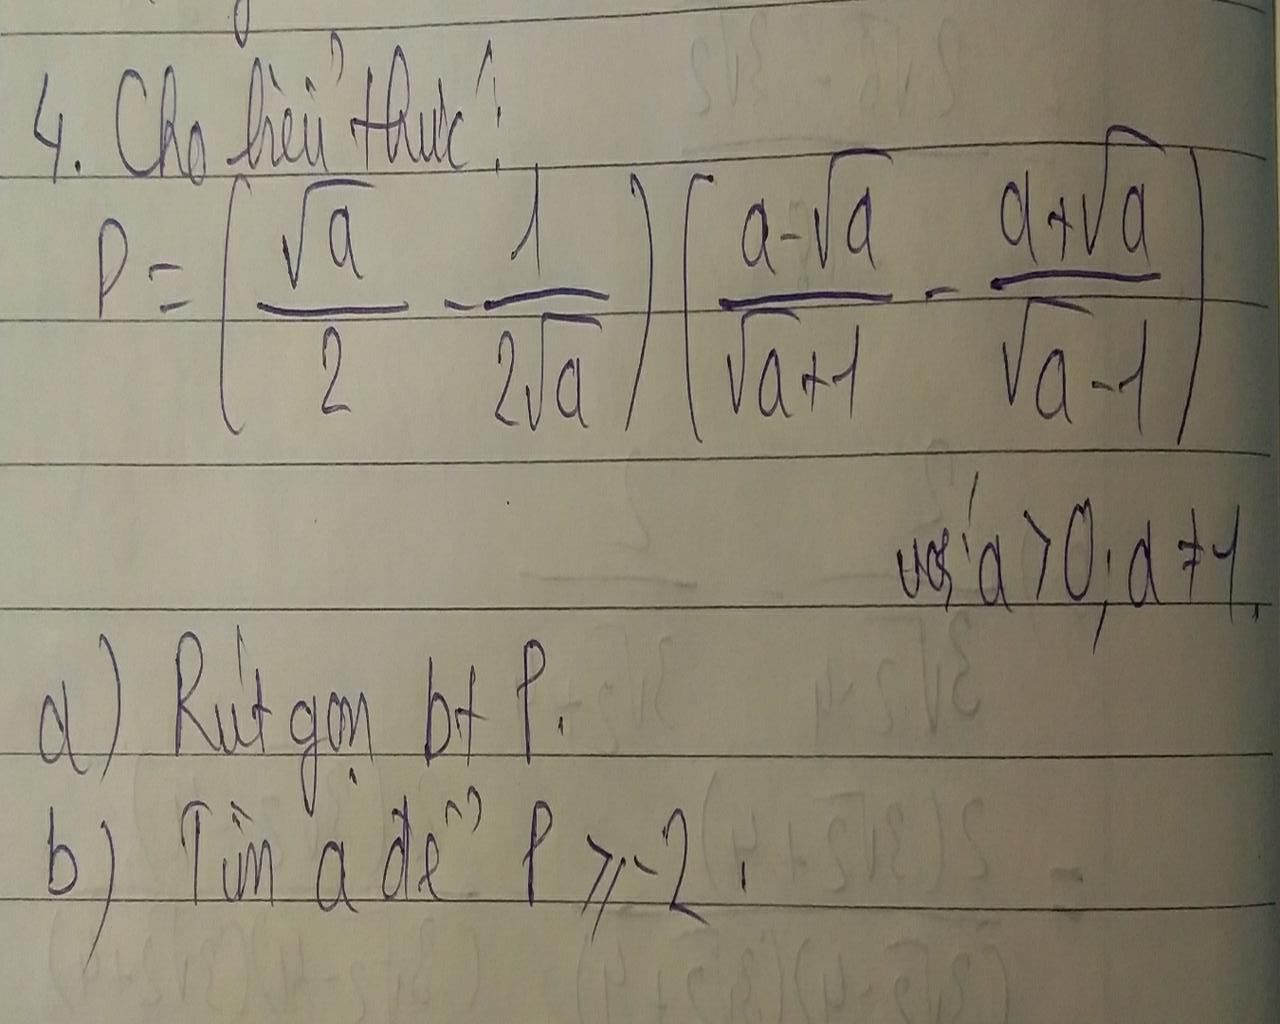 4. Cho biểu thức:
P = (√a/2 - 1/2√a) (a-√a/√a+1 - a+√a/√a-1)
với a > 0; a ≠ 1.
a) Rút gọn bt P.
b) Tìm a để P ⩾ -2.